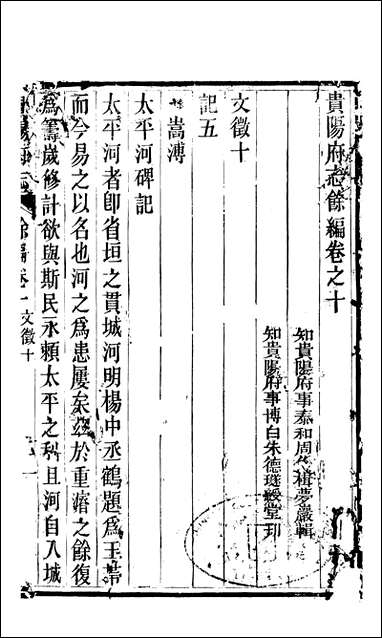 貴陽府志餘編卷之十
知貴陽府事泰和周作楫夢巖輯
知貴陽府事博白朱德璲綬堂刊
文徵十
記五
嵩溥
太平河碑記
太平河者卽省垣之貫城河明楊中丞鶴題爲玉帶
而今易之以名也河之爲患屢矣茲於重濬之餘復
爲籌歲修計欲與斯民永賴太平之利且河自入城
文徵十